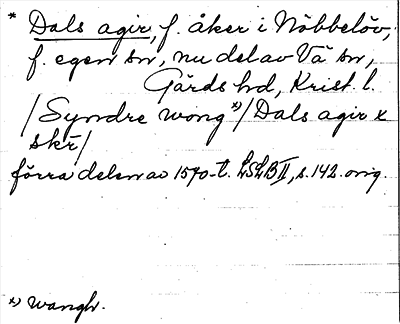 * Dals agir, f. åker i Nöbbelöv,
f. egen sn, nu del av Vä sn,
Gärds hd, Krist. l.
/Syndre wong *)/ Dals agir x
skr/
förra delen av 1570-t. LSLB II, s. 142. orig.
*) wangh.